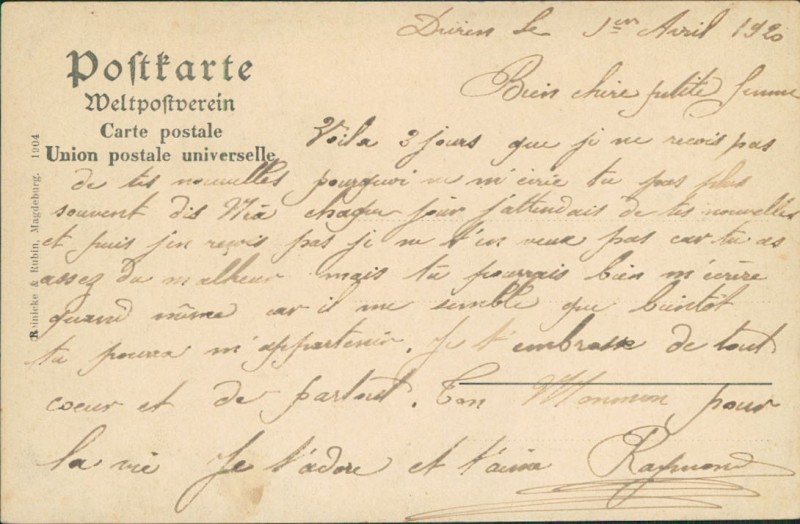 Düren le 1er Avril 1920
Postkarte
Weltpostverein
Carte postale
Union postale universelle
Reinicke & Rubin, Magdeburg. 1904
Bien chere petite femme
Voila 3 jours que je ne reçois pas
de tes nouvelles pourquoi ne m'ecrie tu pas plus
souvent dis chaque jour j'attendais de tes nouvelles
et puis j'en reçois pas je ne t'en veux pas car tu as
assez du malheur mais tu pourrais bien m'écrire
quand même car il me semble que bientôt
tu pourra m'appartenir. Je t'embrasse de tout
coeur et de partout. Ton pour
la vie Je t'adore et t'aime Raymond